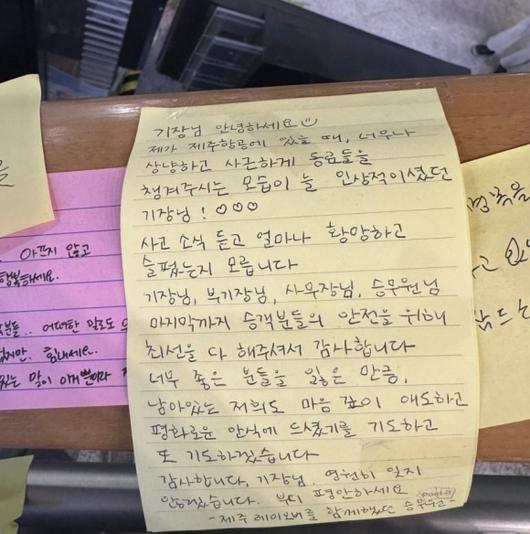 기장님 안녕하세요
제가 제주항공에 있을 때, 너무나
상냥하고 사근하게 동료들을
챙겨주시는 모습이 늘 인상적이셨던
기장님! ♡♡♡
사고 소식 듣고 얼마나 황망하고
슬펐는지 모릅니다
기장님, 부기장님, 사무장님, 승무원님
마지막까지 승객분들의 안전을 위해
최선을 다 해주셔서 감사합니다
너무 좋은 분들을 잃은 만큼,
남아있는 저희도 마음 깊이 애도하고
평화로운 안식에 드셨기를 기도하고
또 기도하겠습니다
감사합니다, 기장님. 영원히 잊지
않겠습니다. 부디 평안하세요
-제주 레이오버를 함께했던 승무원-
아프지 않고
행복하세요.
어떠한 말로도
힘내세요..